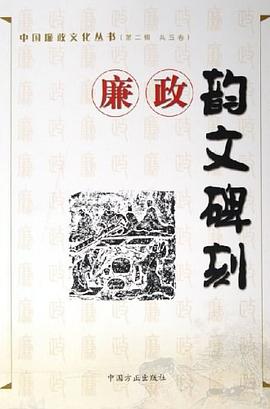 中国廉政文化丛书（第二辑 共五卷）
廉政
韵文碑刻
中国方正出版社